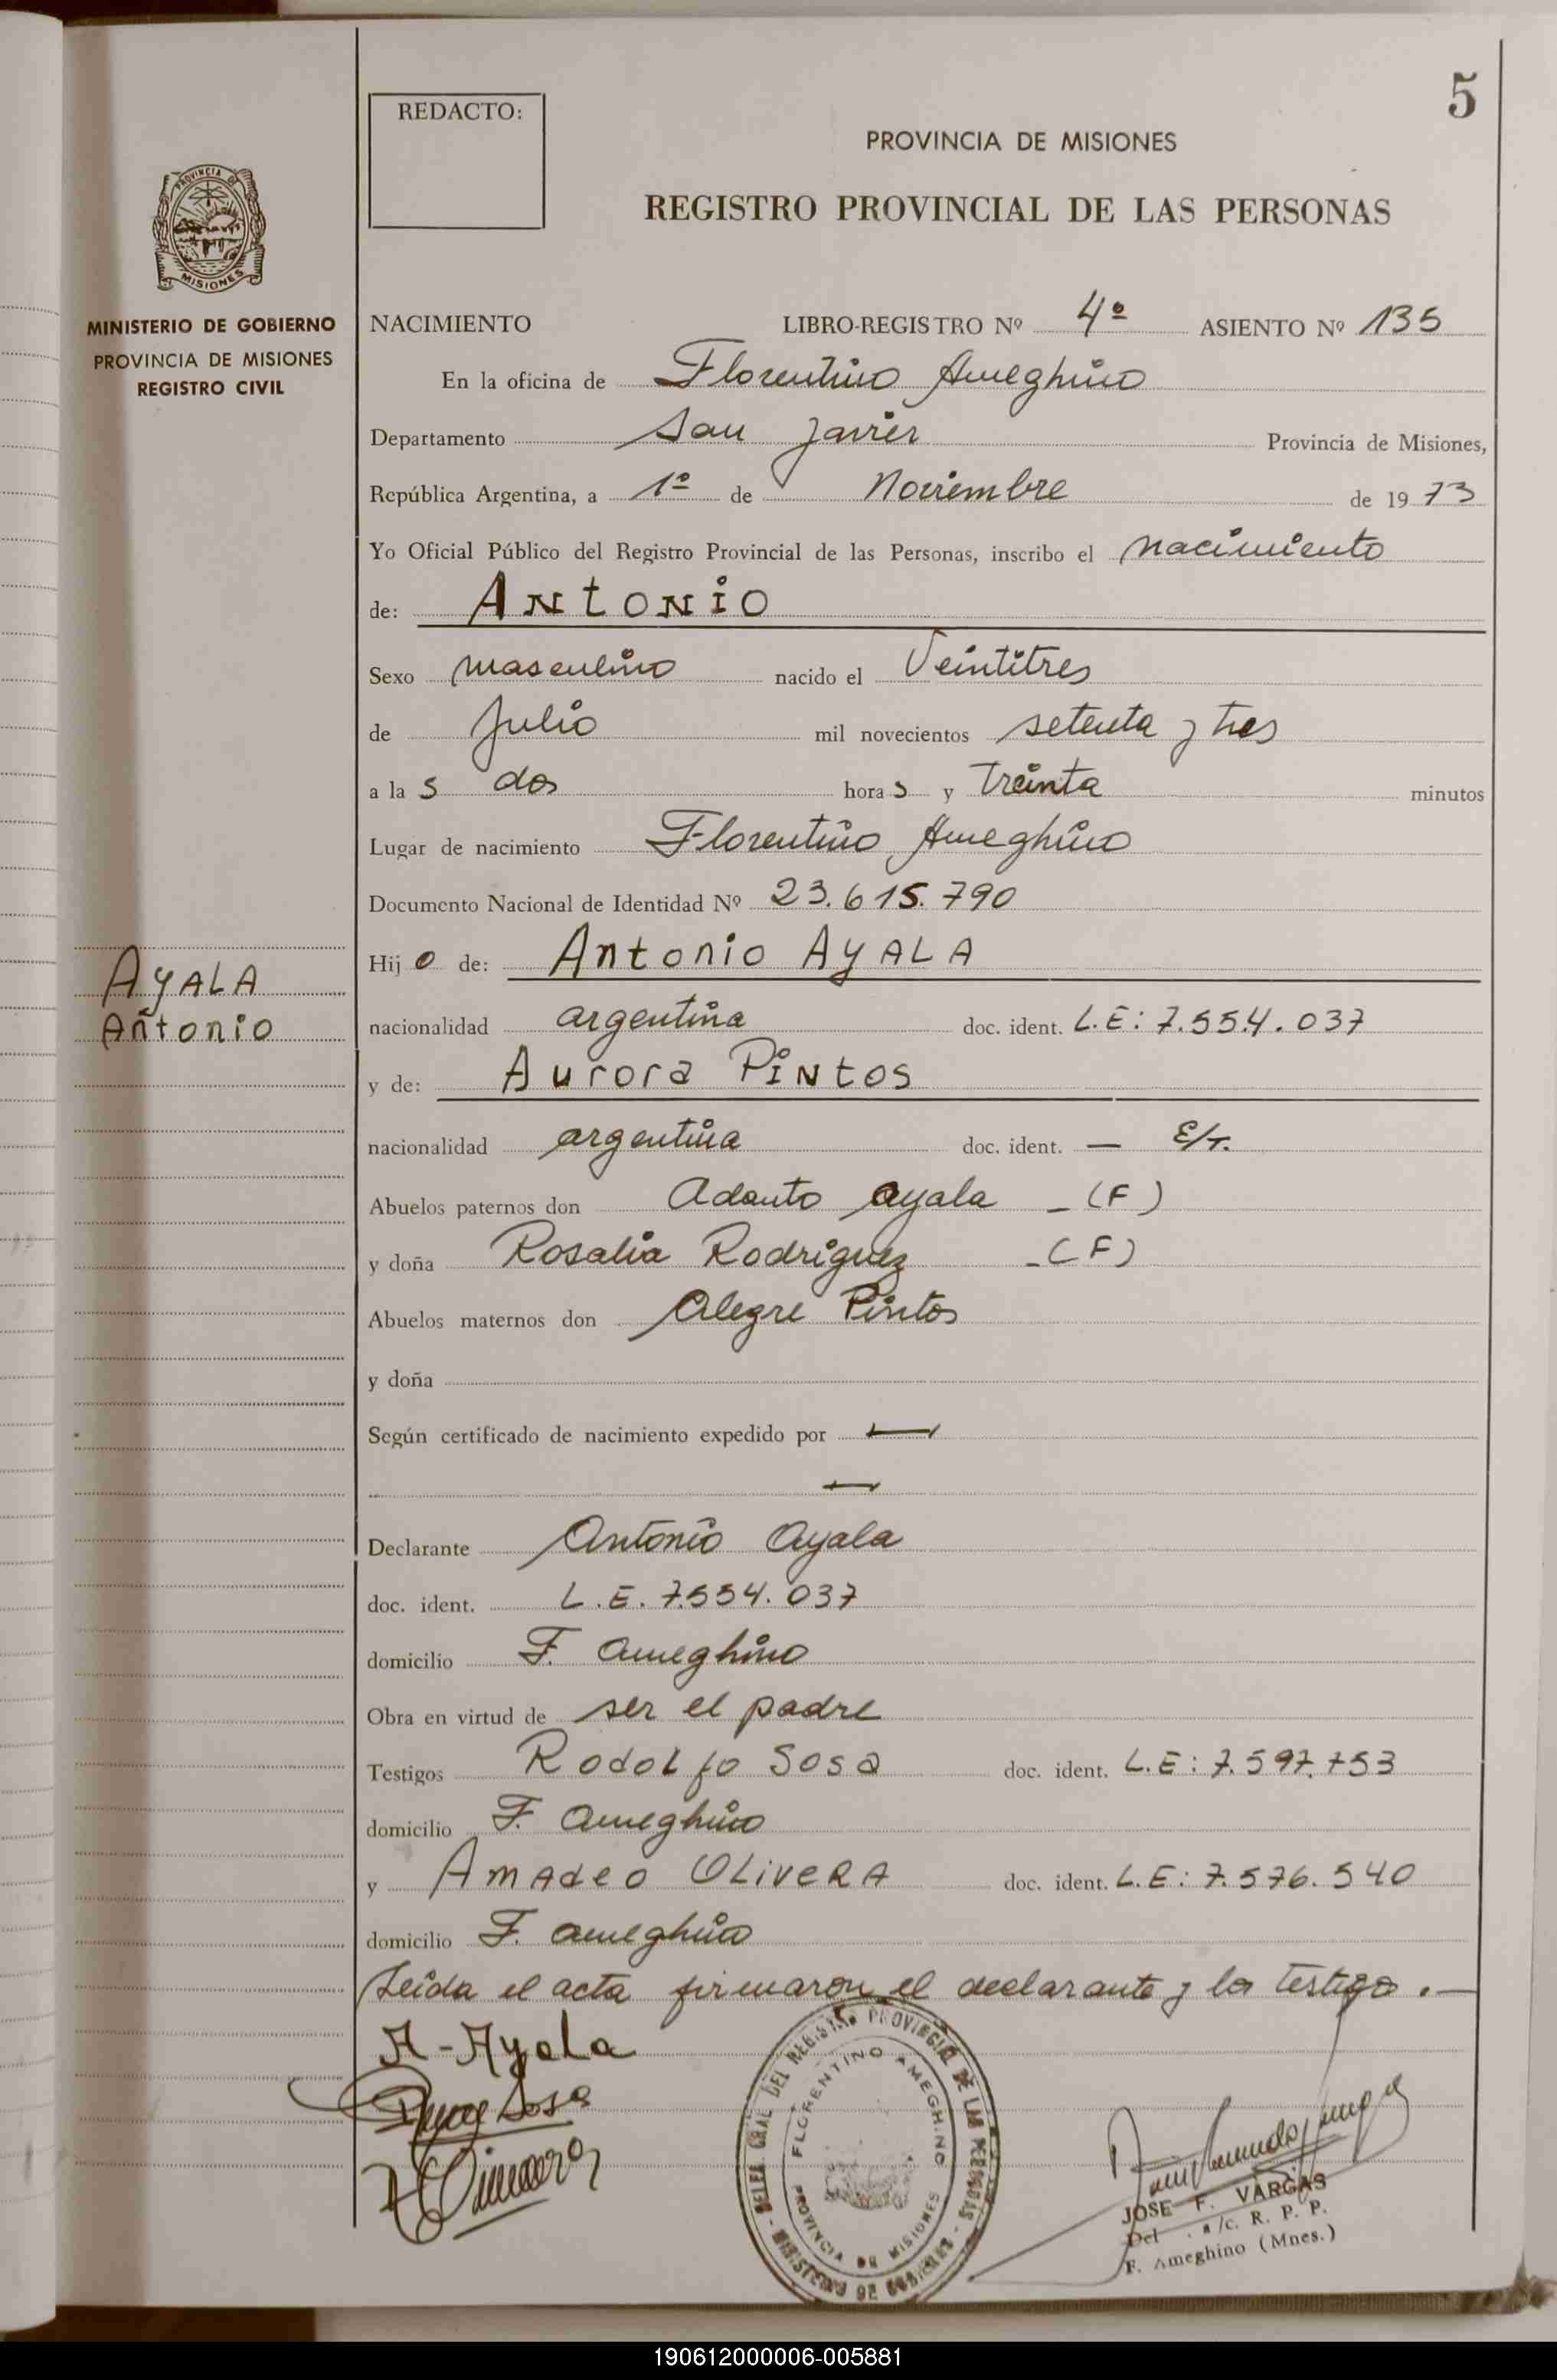 5
REDACTO:
PROVINCIA DE MISIONES
REGISTRO PROVINCIAL DE LAS PERSONAS
PROVINCIA DE
MISIONES
MINISTERIO DE GOBIERNO
PROVINCIA DE MISIONES
REGISTRO CIVIL
NACIMIENTO LIBRO-REGISTRO Nº 4º ASIENTO Nº 135
En la oficina de Florentino Ameghino
Departamento San Javier Provincia de Misiones,
República Argentina, a 1º de Noviembre de 1973
Yo Oficial Público del Registro Provincial de las Personas, inscribo el nacimiento
de: ANtONiO
Sexo masculino nacido el Veintitres
de Julio mil novecientos setenta y tres
a la s dos hora s y Treinta minutos
Lugar de nacimiento Florentino Ameghino
Documento Nacional de Identidad Nº 23.615.790
Hijo de: Antonio AYALA
AYALA
Antonio
nacionalidad argentina doc. ident. L.E: 7.554.037
y de: Aurora PiNtos
nacionalidad argentina doc. ident. — E/T.
Abuelos paternos don Adauto Ayala - (F)
y doña Rosalia Rodriguez - (F)
Abuelos maternos don Alegre Pintos
y doña
Según certificado de nacimiento expedido por —
—
Declarante Antonio Ayala
doc. ident. L.E. 7.554.037
domicilio F. Ameghino
Obra en virtud de ser el padre
Testigos Rodolfo Sosa doc. ident. L.E: 7.597.753
domicilio F. Ameghino
y AmAdeo OLiveRA doc. ident. L.E: 7.576.540
domicilio F. Ameghino
Leida el acta firmaron el declarante y los testigos.—
A-Ayala
Sosa
DELEG. GRAL. DEL REGISTRO PROVINCIAL DE LAS PERSONAS - MINISTERIO DE GOBIERNO
FLORENTINO AMEGHINO
PROVINCIA DE MISIONES
JOSE F. VARGAS
Del. a/c. R. P. P.
F. Ameghino (Mnes.)
190612000006-005881